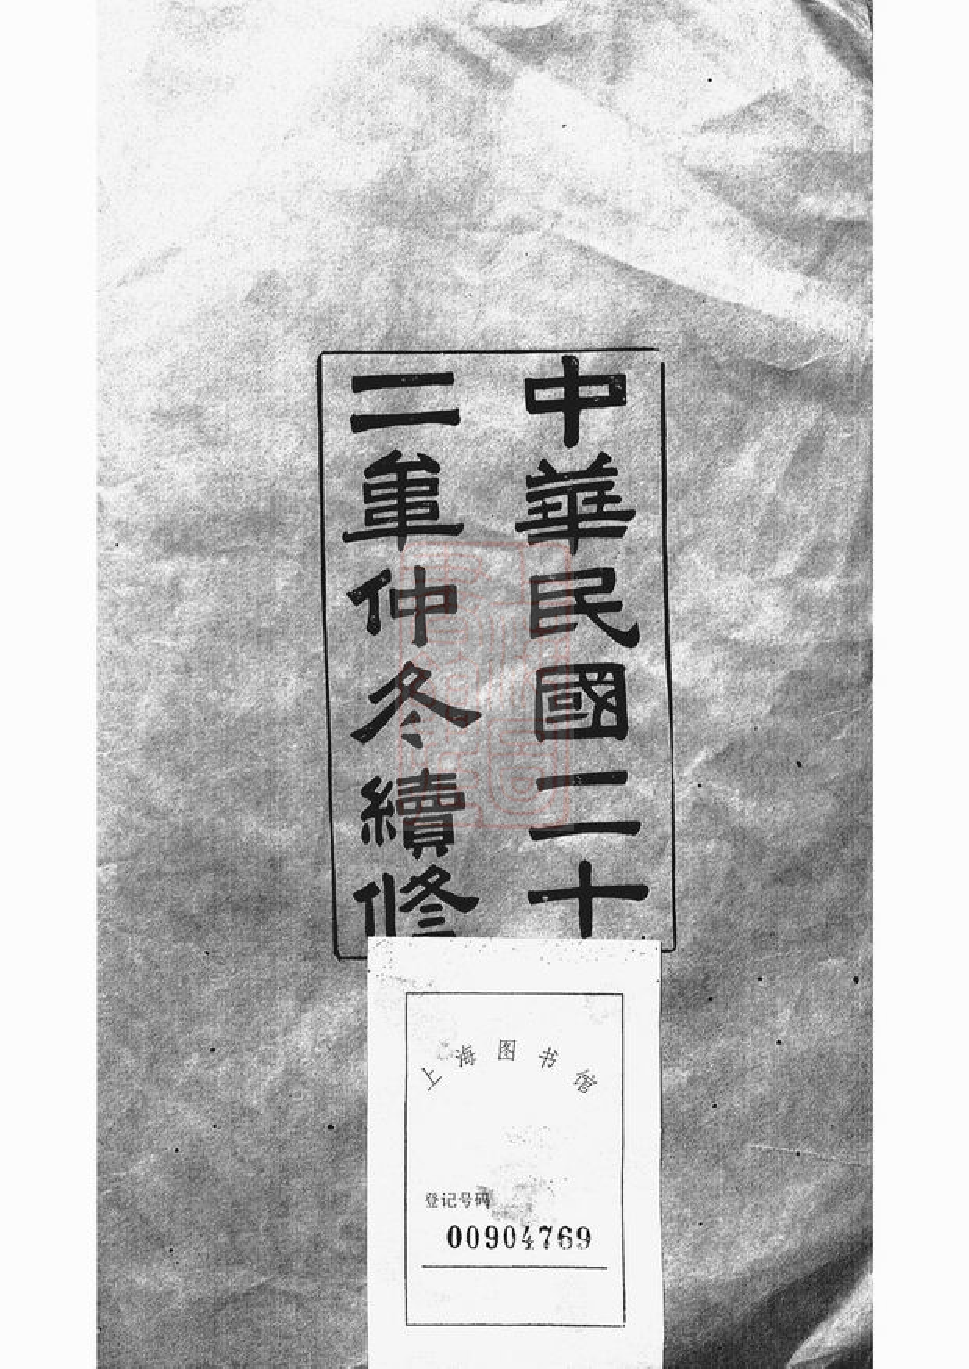 中華民國二十
二年仲冬續修
上海图书馆
登记号码
00904769